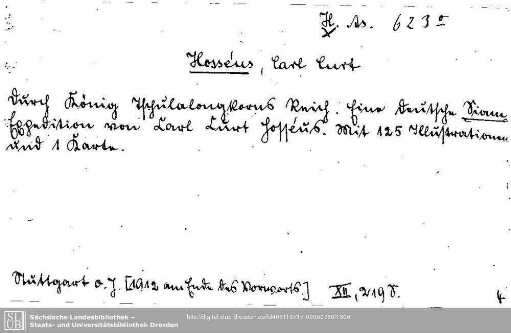 H. As. 623°
Hosséus, Carl Curt
Durch König Tschulalongkorns Reich. Eine deutsche Siam
Expedition von Carl Curt Hosséus. Mit 125 Illustrationen
und 1 Karte.
Stuttgart o. J. [1912 am Ende des Vorworts] XII, 219 S.
4
Sächsische Landesbibliothek –
Staats- und Universitätsbibliothek Dresden